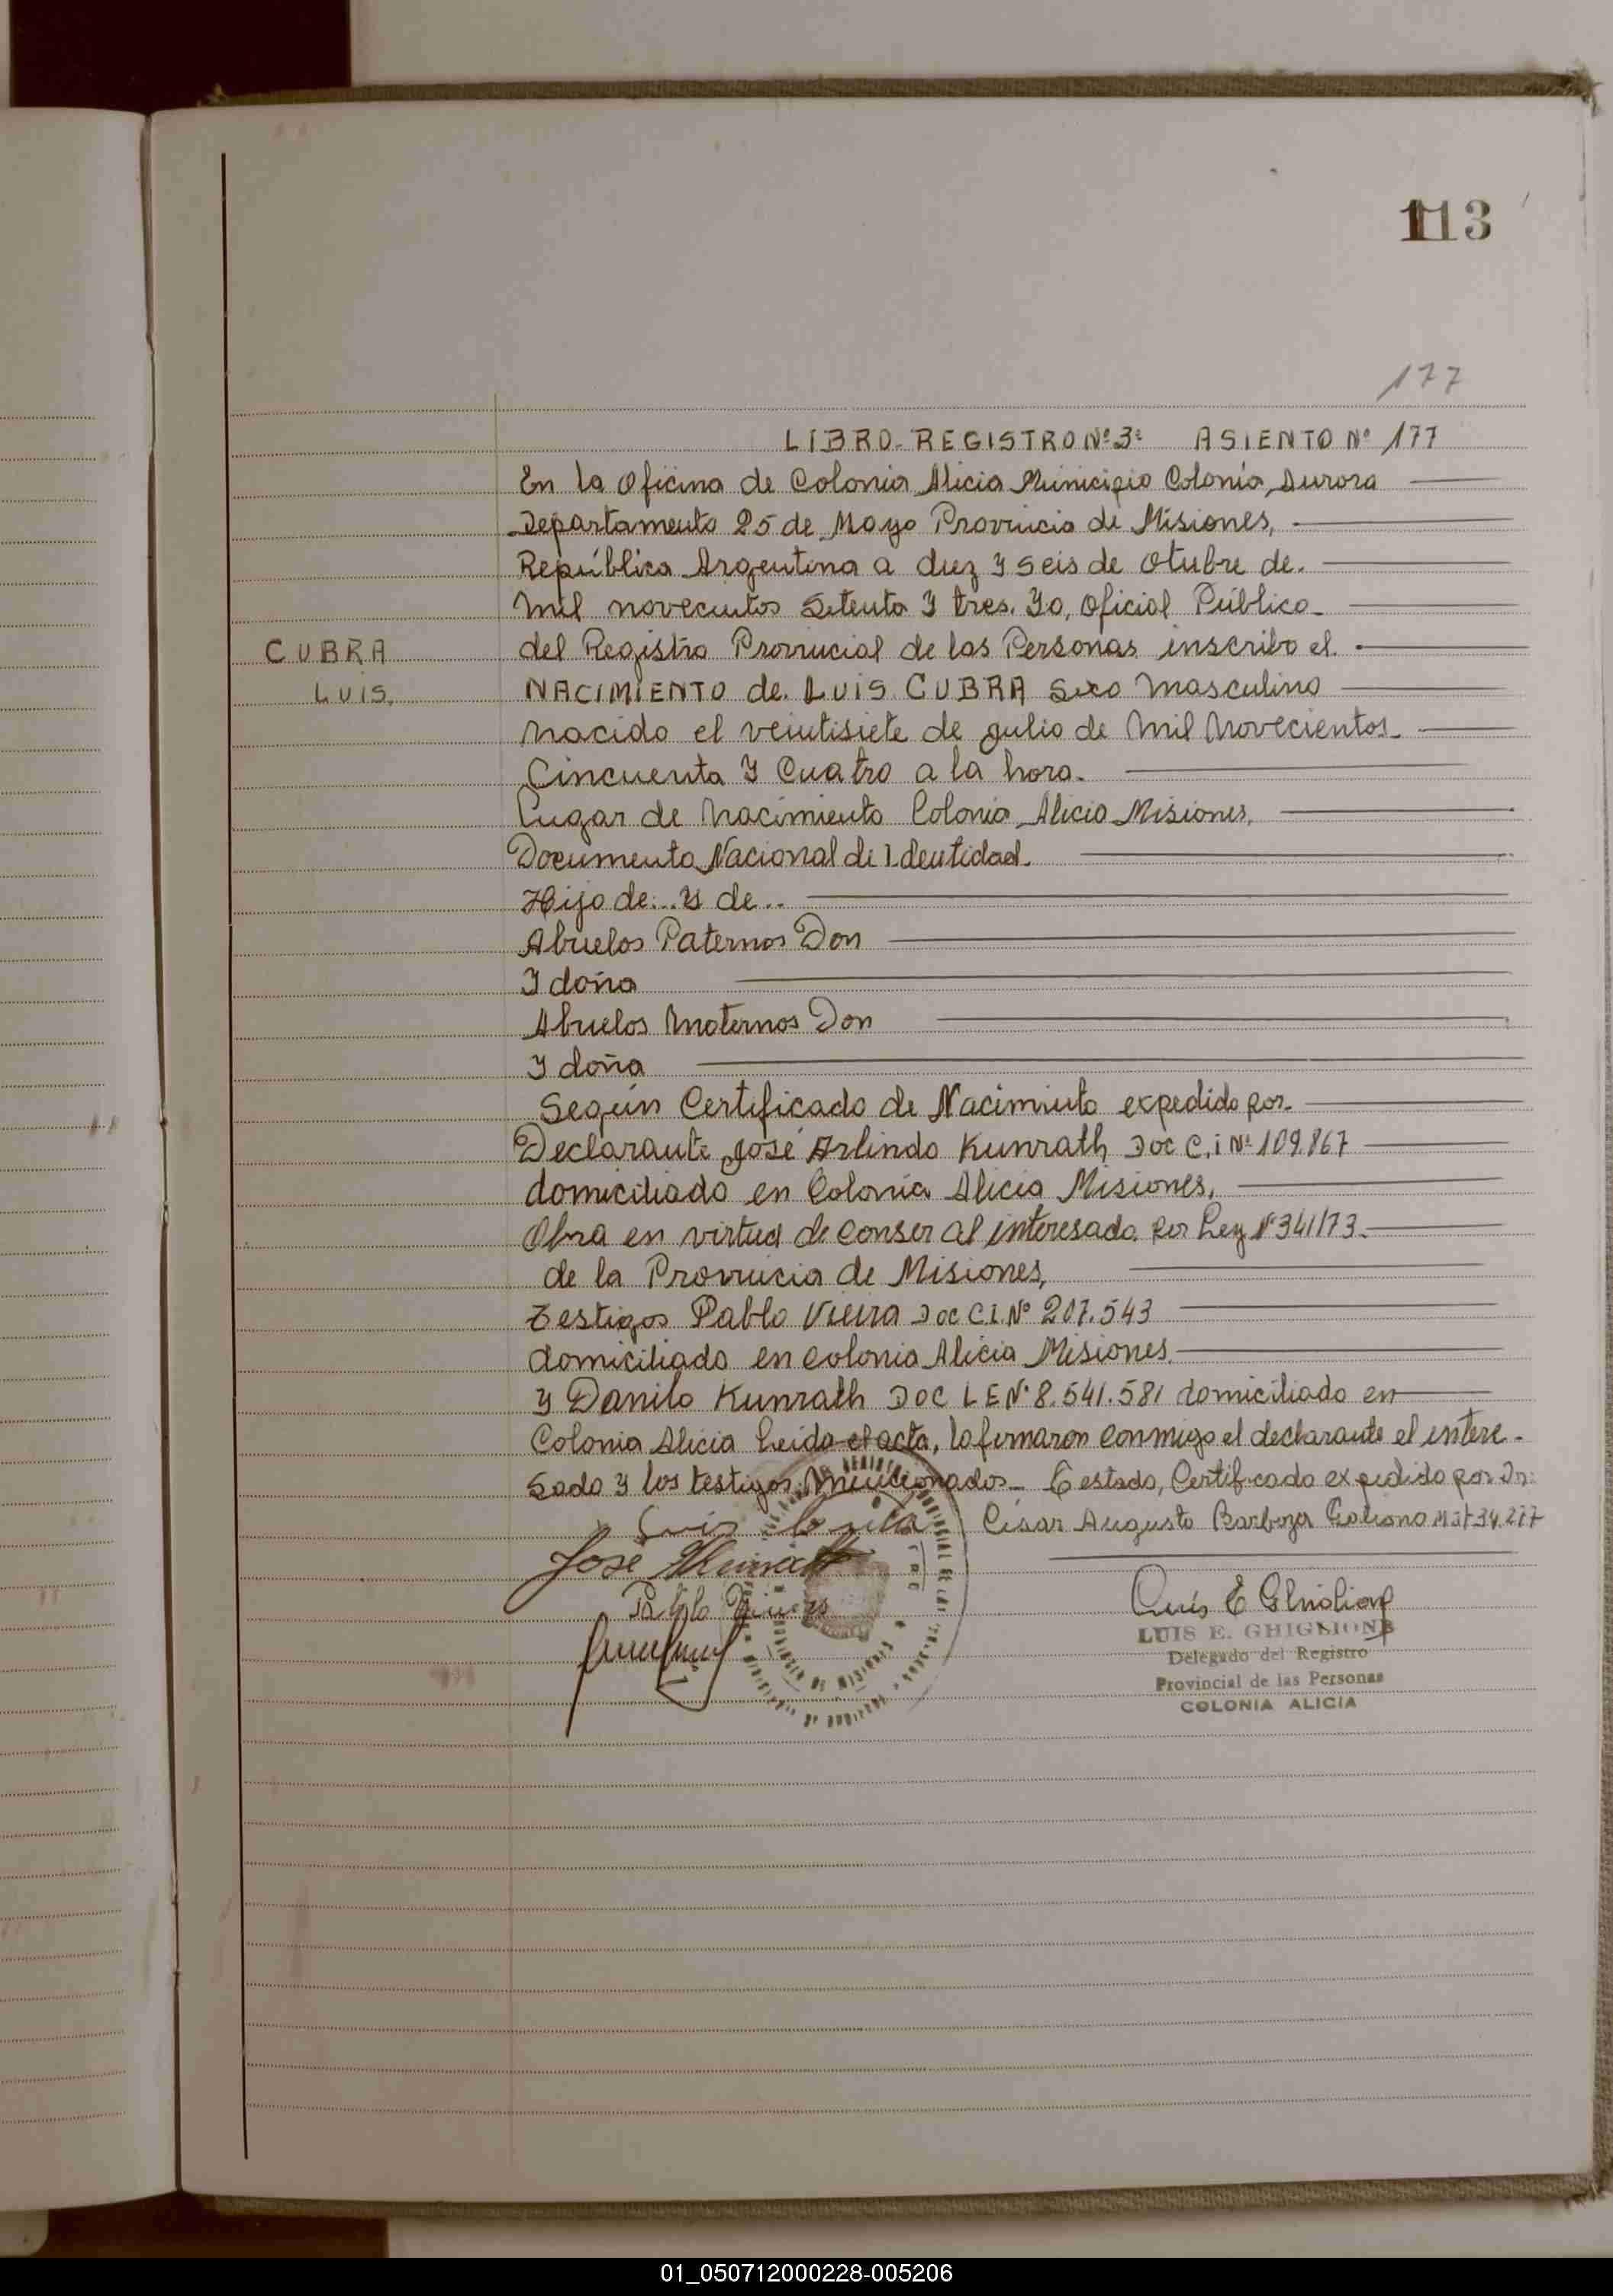 113
177
LIBRO-REGISTRO Nº 3º ASIENTO Nº 177
En la Oficina de Colonia Alicia Municipio Colonia Aurora
Departamento 25 de Mayo Provincia de Misiones,
República Argentina a diez y seis de Otubre de.
mil novecientos Setenta y tres. Yo, Oficial Público
del Registro Provincial de las Personas inscribo el.
CUBRA
LUIS.
NACIMIENTO de. LUIS CUBRA Sexo masculino
nacido el veintisiete de julio de mil novecientos
Cincuenta y Cuatro a la hora.
Lugar de nacimiento Colonia Alicia Misiones,
Documento Nacional de Identidad.
Hijo de... y de..
Abuelos Paternos Don
Y doña
Abuelos maternos Don
Y doña
Según Certificado de Nacimiento expedido por.
Declarante José Arlindo Kunrath Doc C.i Nº 109.867
domiciliado en Colonia Alicia Misiones.
Obra en virtud de conser al interesado por Ley Nº 341/73
de la Provincia de Misiones,
Testigos Pablo Vieira Doc C.I. Nº 207.543
domiciliado en colonia Alicia Misiones.
y Danilo Kunrath DOC L E Nº 8.541.581 domiciliado en
Colonia Alicia Leida el acta, la firmaron conmigo el declarante el intere-
sado y los testigos mencionados- Testado, Certificado expedido por Dr:
César Augusto Barboza Galiano Mat 34.277
Luis
José Kunrath
Pablo
Luis E Ghiglione
LUIS E. GHIGLIONE
Delegado del Registro
Provincial de las Personas
COLONIA ALICIA
01_050712000228-005206